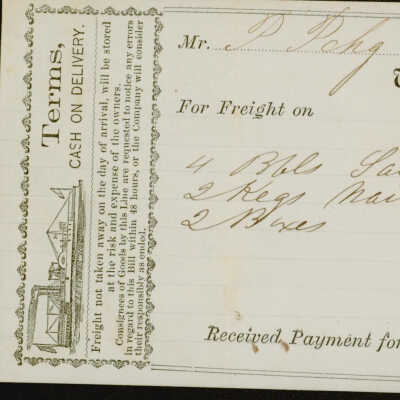 Terms,
CASH ON DELIVERY.
Freight not taken away on the day of arrival, will be stored
at the risk and expense of the owners.
Consignees of Goods by this Line are requested to notice any errors
in regard to this Bill within 48 hours, or the Company will consider
their responsibly as ended.
Mr.
For Freight on
4 Bbls
2 Kegs
2 Boxes
Received Payment for